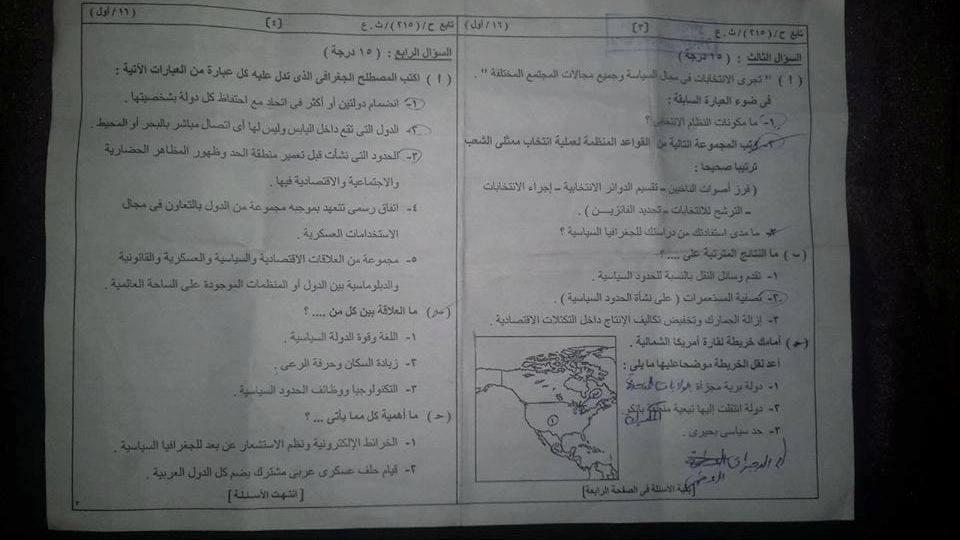 تابع ح/(٢١٥)/ث.ع
[٣]
(١٦/أول)
السؤال الثالث : ( ١٥ درجة )
( أ ) " تجرى الانتخابات فى مجال السياسة وجميع مجالات المجتمع المختلفة " .
فى ضوء العبارة السابقة :
١- ما مكونات النظام الانتخابى ؟
٢- رتب المجموعة التالية من القواعد المنظمة لعملية انتخاب ممثلى الشعب
ترتيبا صحيحا :
( فرز أصوات الناخبين – تقسيم الدوائر الانتخابية – إجراء الانتخابات
– الترشح للانتخابات – تحديد الفائزين ) .
ما مدى استفادتك من دراستك للجغرافيا السياسية ؟
( ب ) ما النتائج المترتبة على .... ؟
١- تقدم وسائل النقل بالنسبة للحدود السياسية .
٢- تصفية المستعمرات ( على نشأة الحدود السياسية ) .
٣- إزالة الجمارك وتخفيض تكاليف الإنتاج داخل التكتلات الاقتصادية .
( حـ ) أمامك خريطة لقارة أمريكا الشمالية .
أعد نقل الخريطة موضحا عليها ما يلى :
١- دولة برية مجزأة الولايات المتحدة
٢- دولة انتقلت إليها تبعية منطقة بانكو.
المكسيك
٣- حد سياسى بحيرى .
[بقية الأسئلة فى الصفحة الرابعة]
تابع ح/(٢١٥)/ث.ع
[٤]
(١٦/أول)
السؤال الرابع : ( ١٥ درجة )
( أ ) اكتب المصطلح الجغرافى الذى تدل عليه كل عبارة من العبارات الآتية :
١- انضمام دولتين أو أكثر فى اتحاد مع احتفاظ كل دولة بشخصيتها .
٢- الدول التى تقع داخل اليابس وليس لها أى اتصال مباشر بالبحر أو المحيط .
٣- الحدود التى نشأت قبل تعمير منطقة الحد وظهور المظاهر الحضارية
والاجتماعية والاقتصادية فيها .
٤- اتفاق رسمى تتعهد بموجبه مجموعة من الدول بالتعاون فى مجال
الاستخدامات العسكرية .
٥- مجموعة من العلاقات الاقتصادية والسياسية والعسكرية والقانونية
والدبلوماسية بين الدول أو المنظمات الموجودة على الساحة العالمية .
(ب) ما العلاقة بين كل من .... ؟
١- اللغة وقوة الدولة السياسية .
٢- زيادة السكان وحرفة الرعى .
٣- التكنولوجيا ووظائف الحدود السياسية .
(حـ) ما أهمية كل مما يأتى ... ؟
١- الخرائط الإلكترونية ونظم الاستشعار عن بعد للجغرافيا السياسية .
٢- قيام حلف عسكرى عربى مشترك يضم كل الدول العربية .
[ انتهت الأسئلة ]